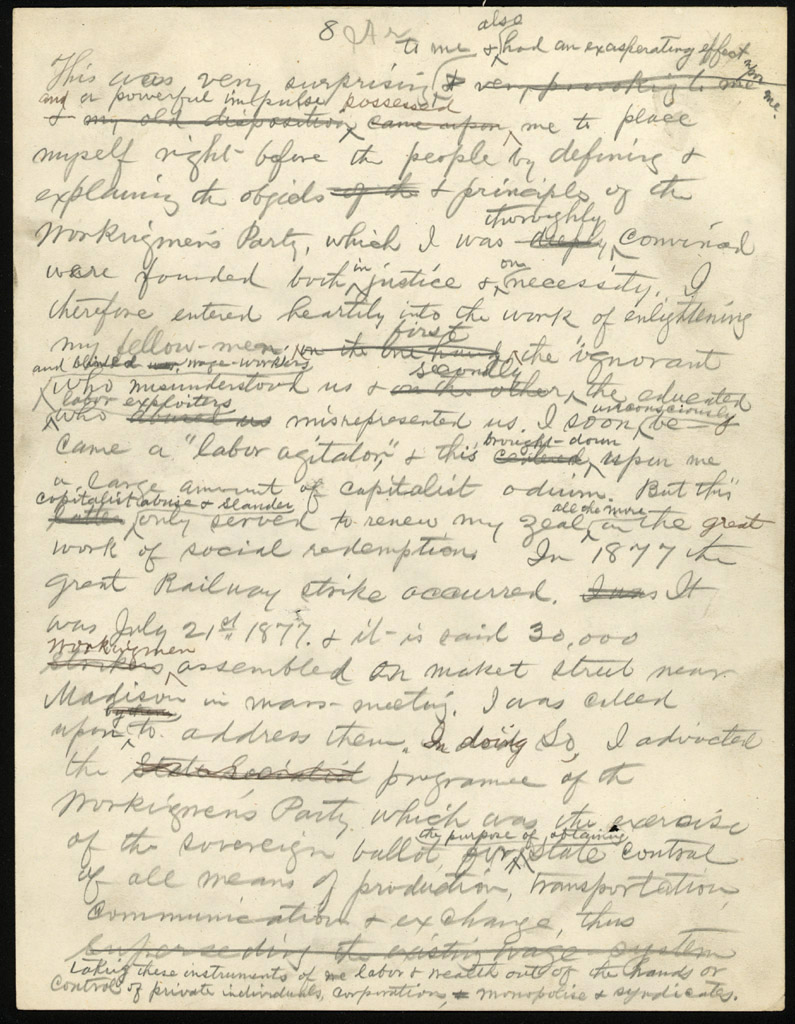 8
also
to me & had an exasperating effect
upon me.
This was very surprising & very provoking to me
and a powerful impulse possessed
& my old disposition came upon me to place
myself right before the people by defining &
explaining the objects of the & principles of the
thoroughly
Workingmen's Party, which I was deeply convinced
in on
were founded both justice & necessity. I
therefore entered heartily into the work of enlightening
first
my fellow-men, on the one hand, the ignorant
and blinded wage-workers secondly
who misunderstood us & on the other, the educated
labor exploiters unconsciously
who abused us misrepresented us. I soon be-
brought down
came a "labor agitator," & this centered upon me
a large amount of capitalist odium. But this
capitalist abuse & slander all the more
latter only served to renew my zeal in the great
work of social redemption. In 1877 the
great Railway strike occurred. I was It
was July 21st 1877. & it is said 30,000
Workingmen
strikers assembled on maket street near
Madison in mass-meeting. I was called
by them
upon to address them. In doing So, I advocated
the State Socialist programme of the
Workingmen's Party which was the exercise
the purpose of obtaining
of the sovereign ballot for state control
of all means of production, transportation,
communication & exchange, thus
superseding the existing wage system
taking these instruments of labor & wealth out of the hands or
control of private individuals, corporations, & monopolise & syndicates.